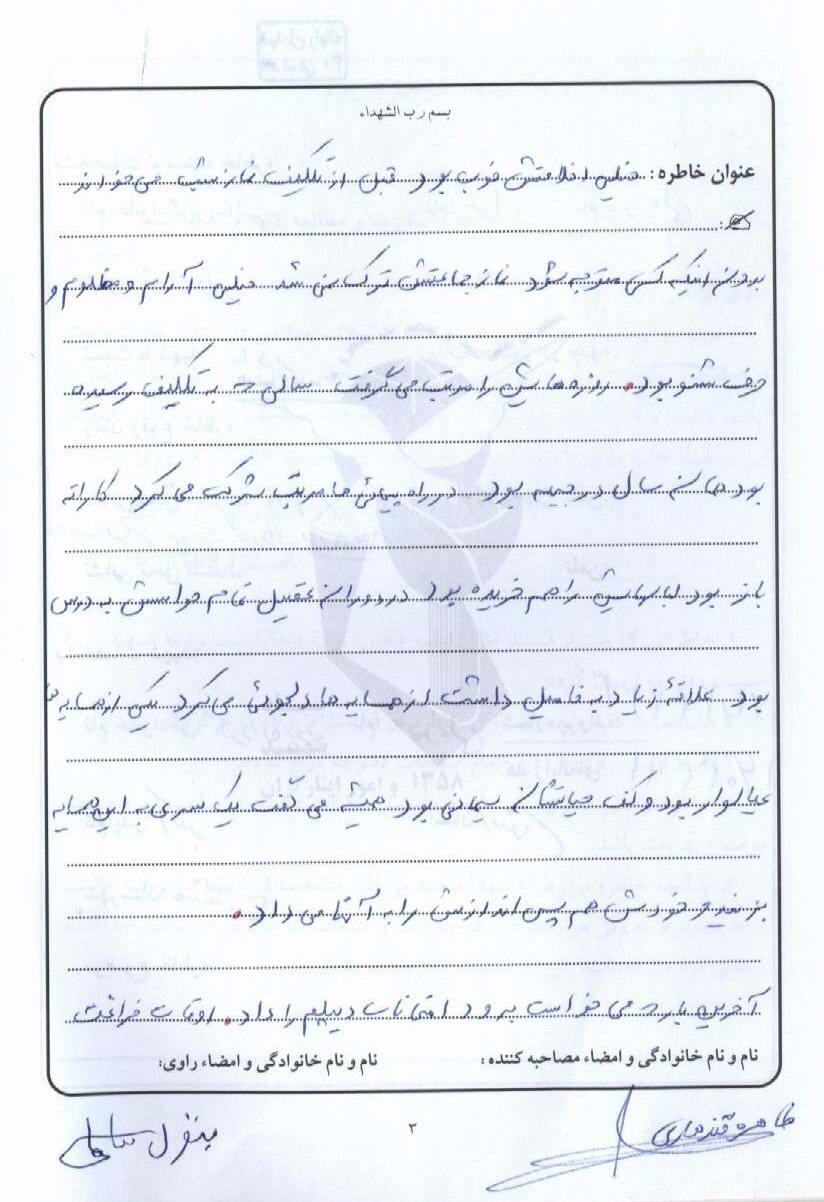 بسم رب الشهداء
عنوان خاطره: خیلی اخلاقش خوب بود قبل از تکلیف نماز شب می خواند
بدون اینکه کسی متوجه شود نماز جماعتش ترک نمی شد خیلی آرام و مظلوم و
حرف شنو بود. روزه هایش را مرتب می گرفت سالی که به تکلیف رسیده
بود همان سال در جبهه بود در راه پیمائی ها مرتب شرکت می کرد کاراته
باز بود لباسهایش را هم خریده بود در دوران تحصیل تمام حواسش به درس
بود علاقه زیاد به فامیل داشت از همسایه ها دلجوئی می کرد یکی از همسایه ها
عیالوار بود و کف حیاطشان سیمانی بود همیشه می گفت یک سری به این همسایه
بزنید و خودش هم پس اندازش را به آنها می داد.
آخرین بار که می خواست برود امتحانات دیپلم را داد. اوقات فراغت
نام و نام خانوادگی و امضاء مصاحبه کننده: نام و نام خانوادگی و امضاء راوی:
طاهره قندهاری
۳